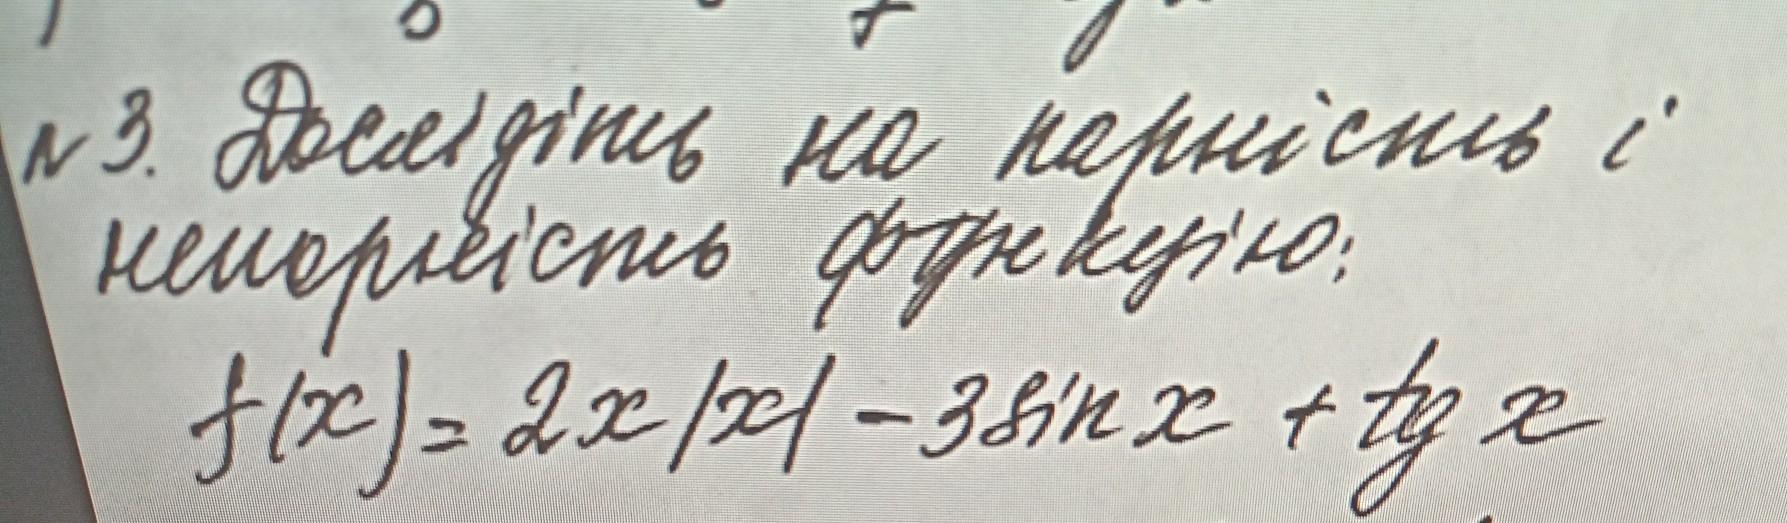 №3. Дослідіть на парність і
непарність функцію:
f(x) = 2x|x| - 3sin x + tg x